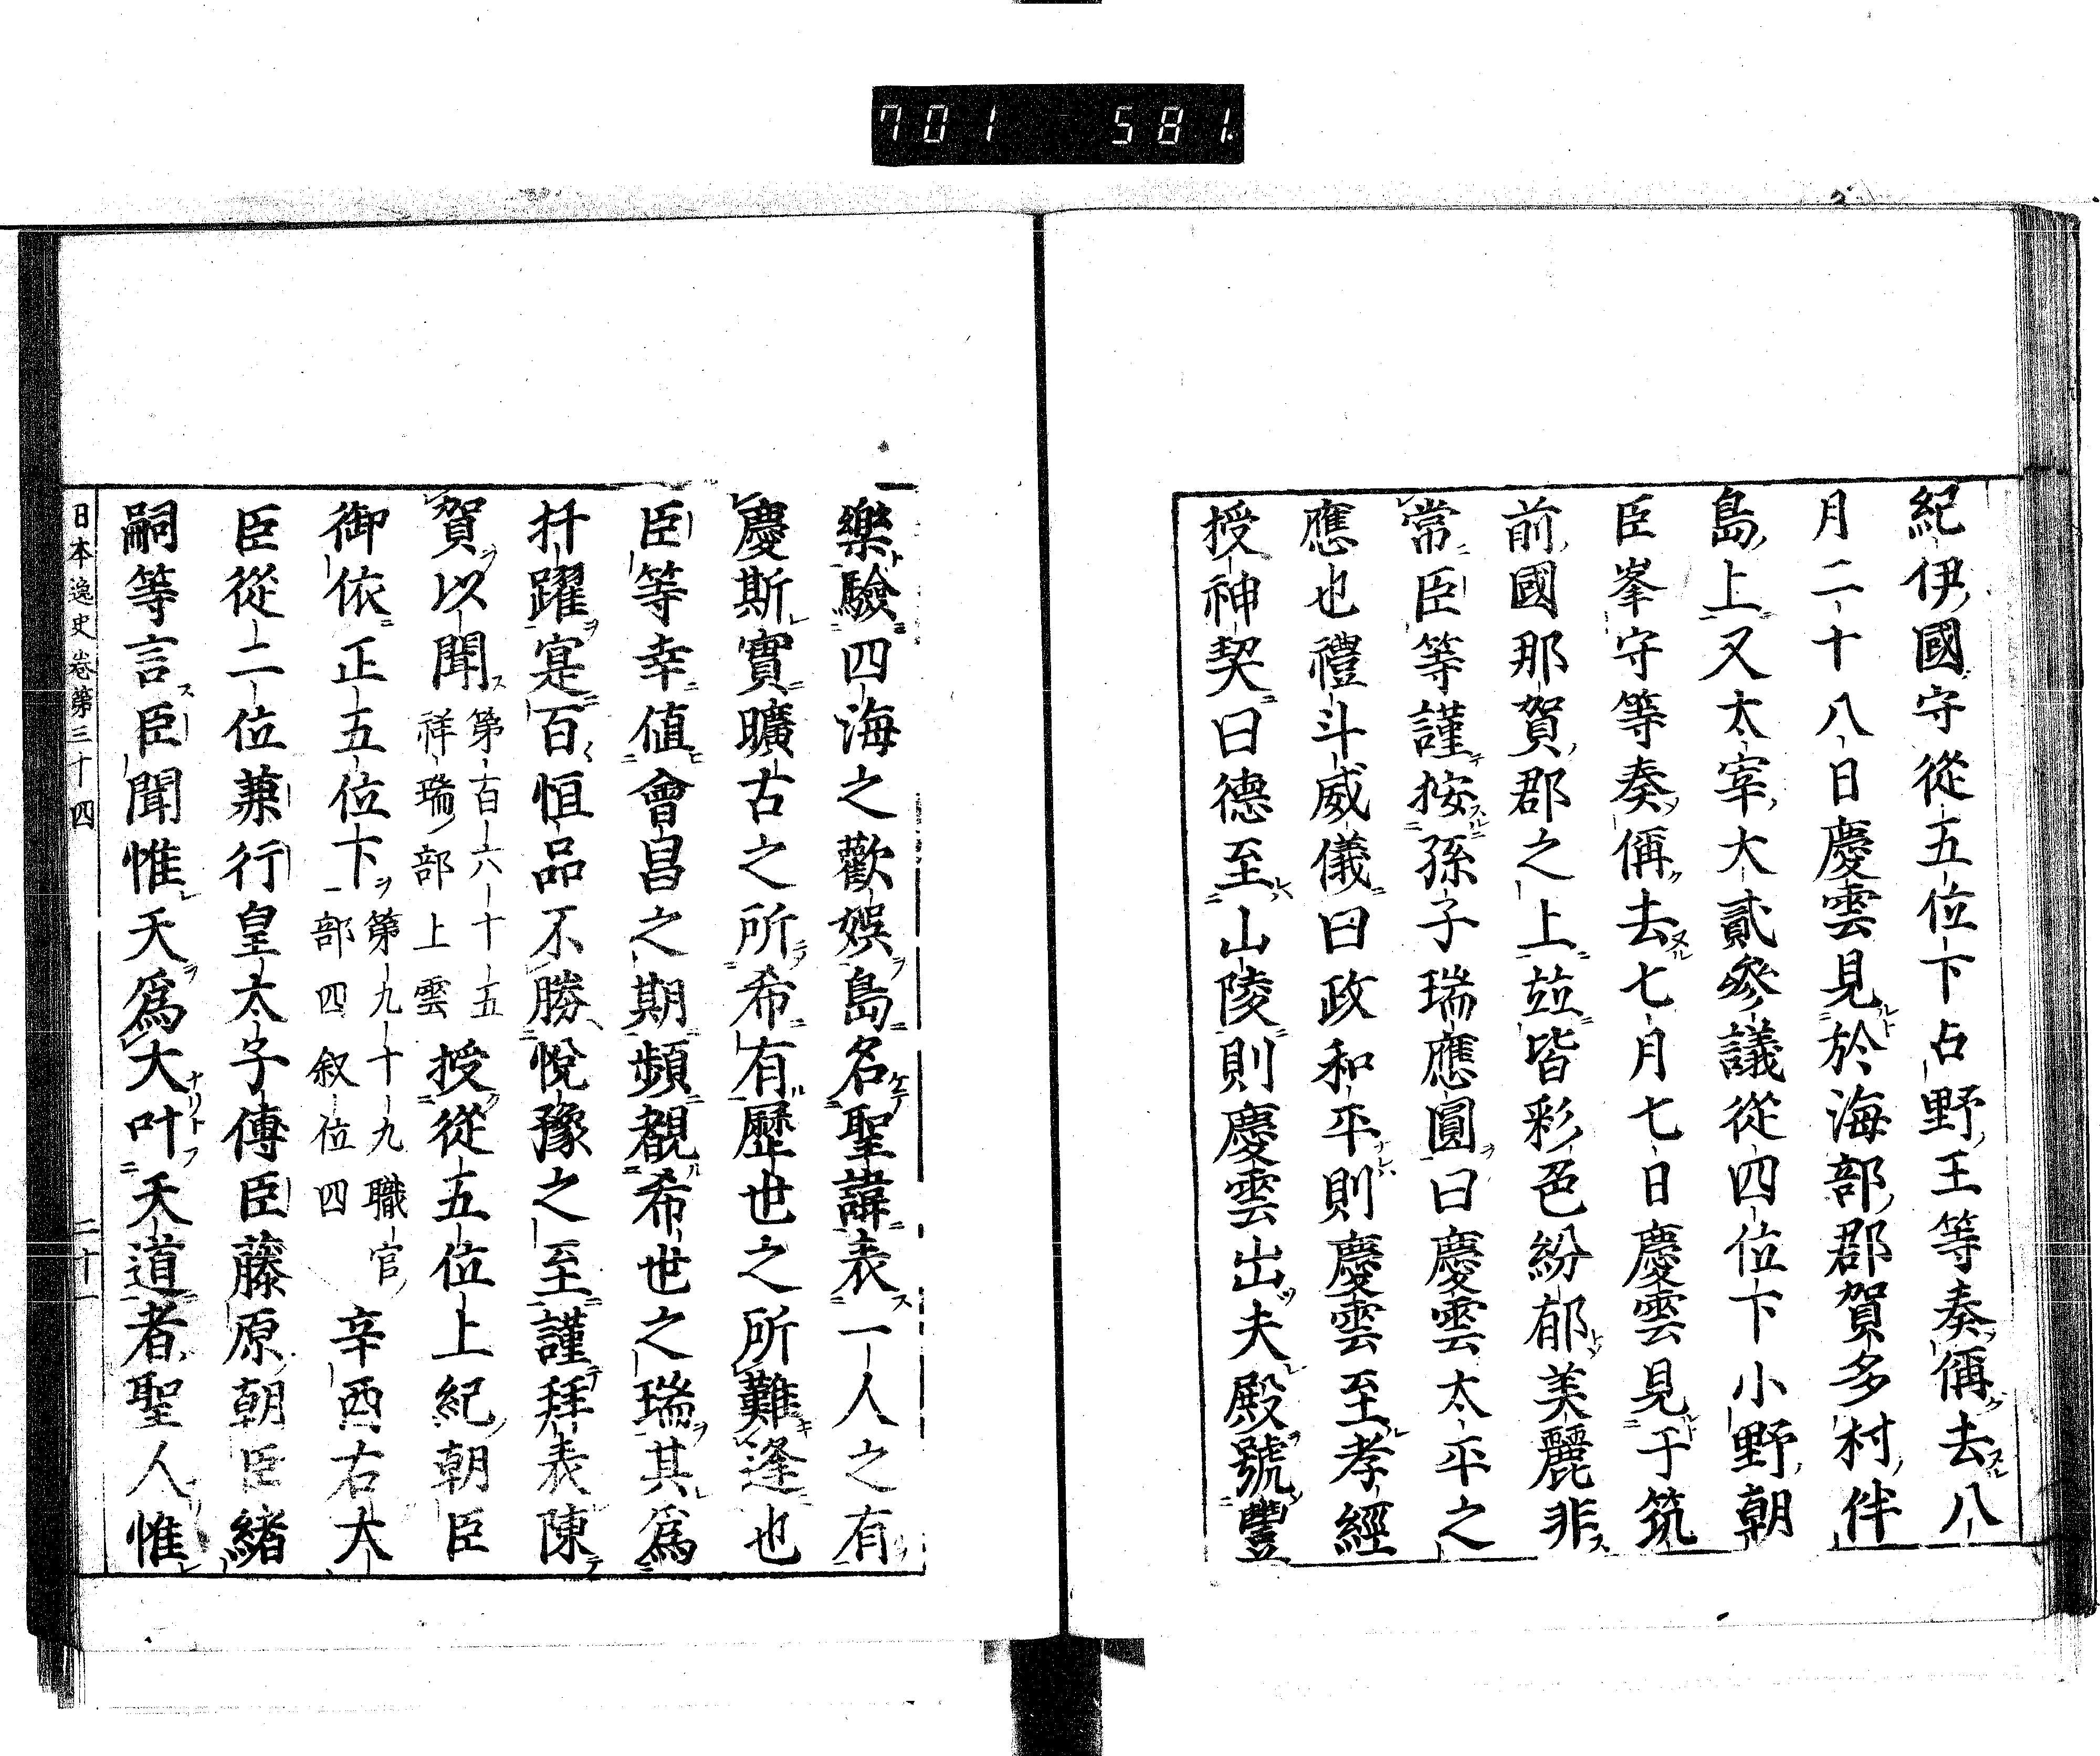 701 581
紀伊國守從五位下占野王等奏偁去八
月二十八日慶雲見於海部郡賀多村伴
島上又太宰大貳參議從四位下小野朝
臣峯守等奏偁去七月七日慶雲見于筑
前國那賀郡之上並皆彩色紛郁美麗非
常臣等謹按孫子瑞應圓曰慶雲太平之
應也禮斗威儀曰政和平則慶雲至孝經
授神契曰德至山陵則慶雲出夫殿號豐
樂驗四海之歡娯島名聖諱表一人之有
慶斯實曠古之所希有歷世之所難逢也
臣等幸値會昌之期頻覩希世之瑞其爲
抃躍寔百恒品不勝悅豫之至謹拜表陳
賀以聞第百六十五祥瑞部上雲授從五位上紀朝臣
御依正五位下第九十九職官部四叙位四辛酉右大
臣從二位兼行皇太子傅臣藤原朝臣緒
嗣等言臣聞惟天爲大叶天道者聖人惟
日本逸史卷第三十四 二十一